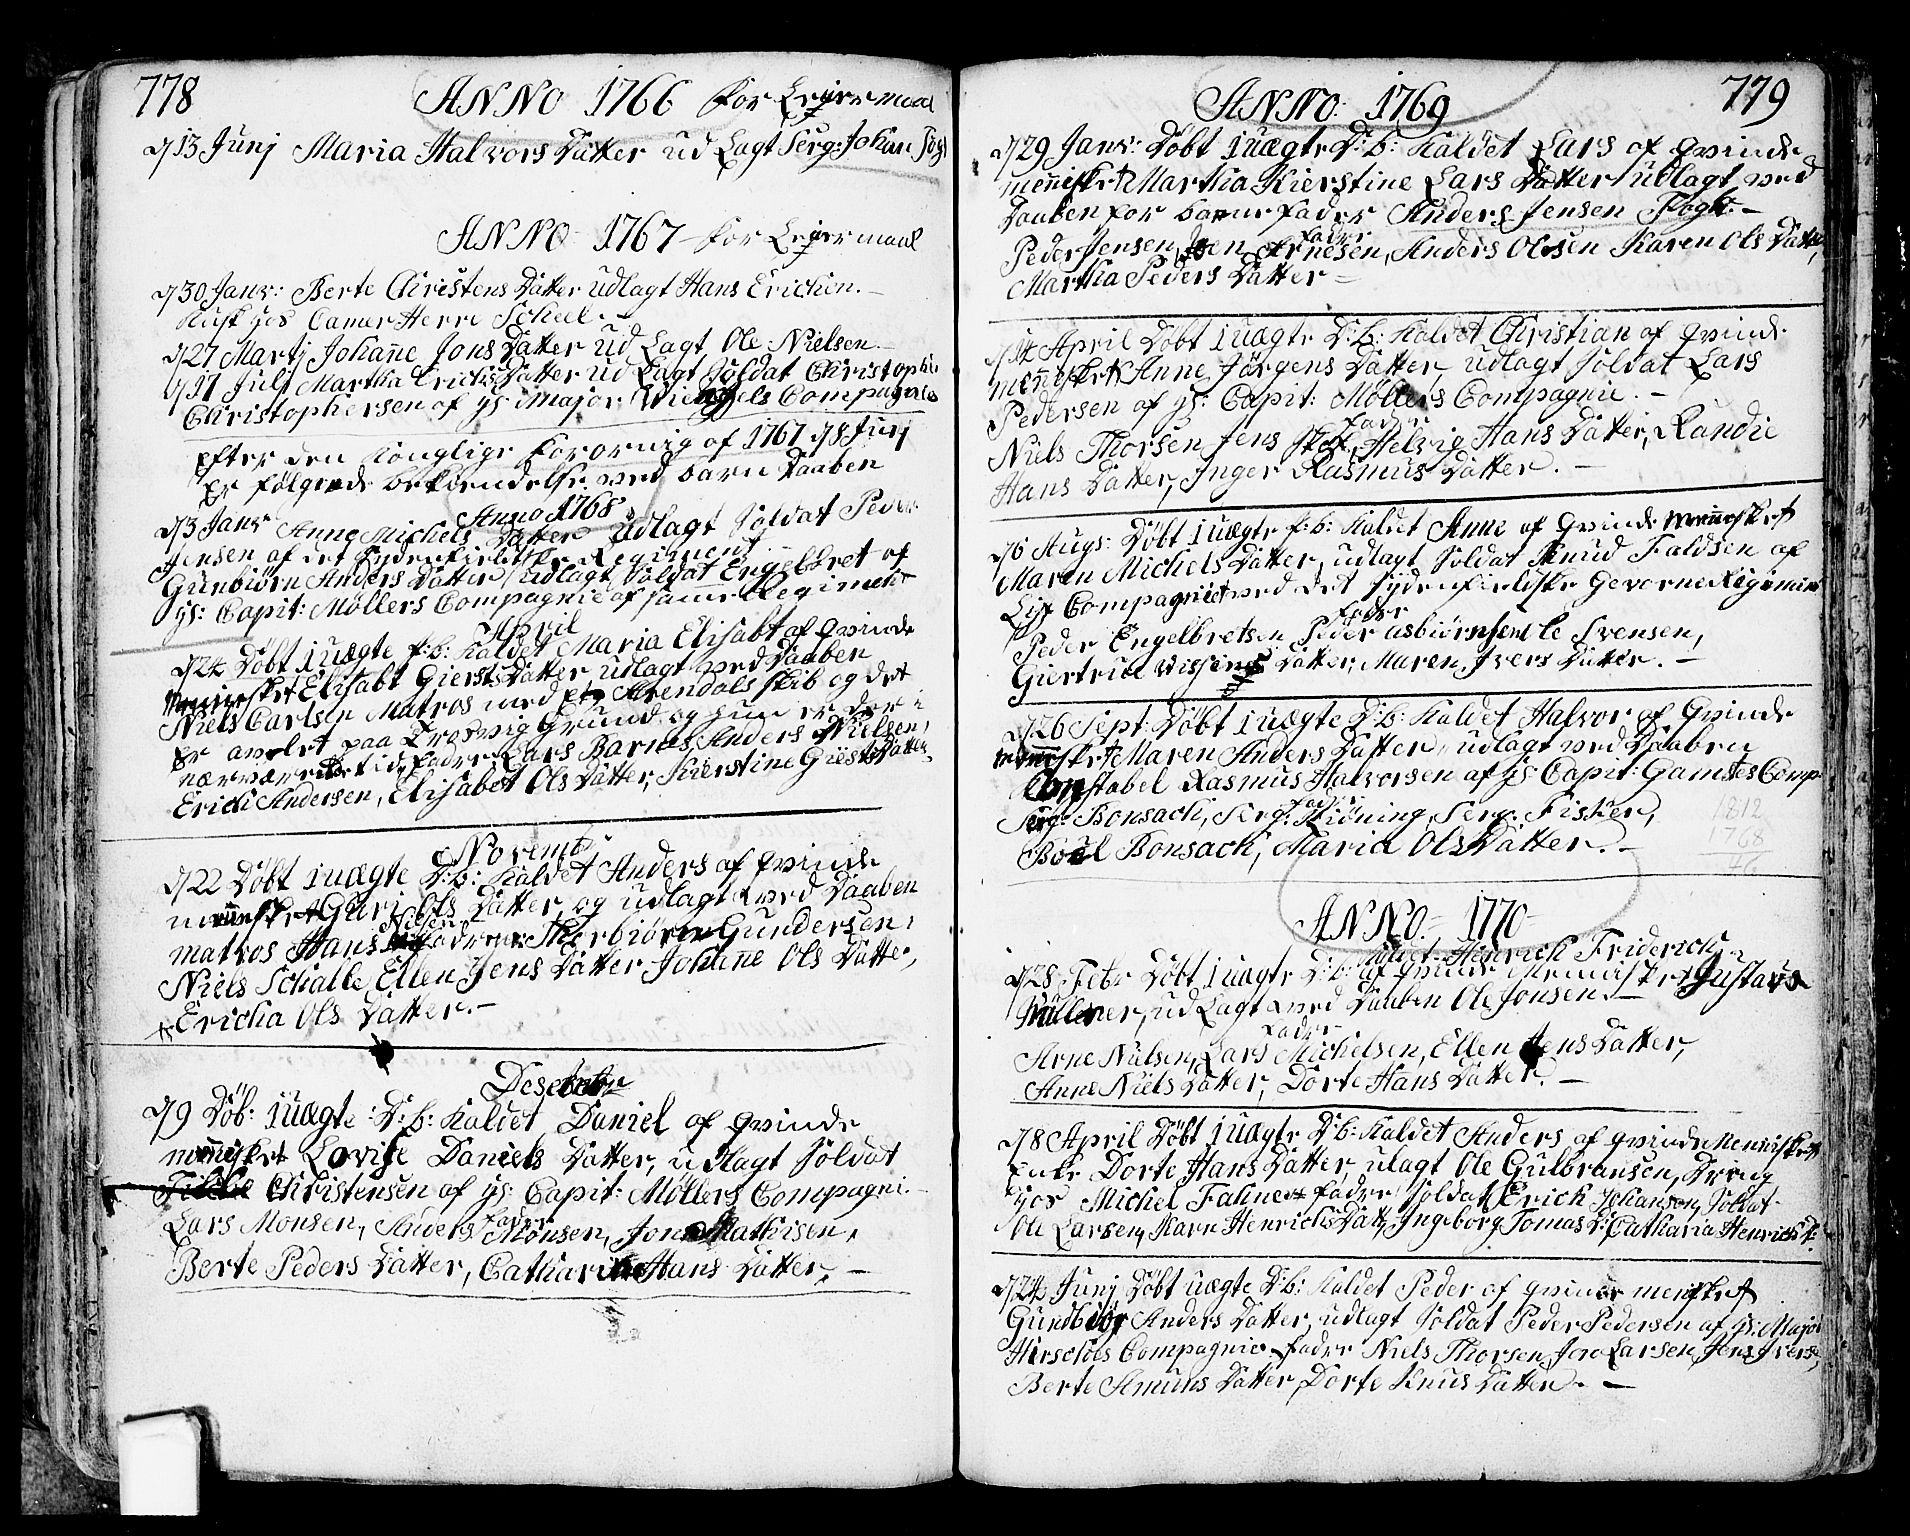 778
ANNO 1766 for Leiermaal
d 13 Junj Maria Halvors Datter ud Lagt Serg: Johan
ANNO 1767 for Leiermaal
d 30 Janv: Berte Christens Datter Udlagt Hans Erichsen.
Kusk hos Camer Herre Scheel.
d 27 Martj Johane Jons Datter ud Lagt Ole Nielsen.
d 17 Julj Martha Erichs Datter ud Lagt Soldat Christopher
Christophersen af hs: Major Compagnie
efter den Konglige forornig af 1767 d 8 Junj
er følgende bekiendelse ved barn Daaben
Anno 1768
d 3 Janv Anne Michels Datter udlagt Soldat Peder
Jensen af det Syndenfieldske Regiment
Gunbiørn Anders Datter, udlagt Soldat Engelbret af
hs: Capit: Møllers Compagnie af samme Regiment
April
d 24 Døbt 1 uægte p:b: kaldet Maria Elisabt af qvinde
mennisket Elisabt Giersts Datter udlagt ved Daaben
Niels Carlsen Matros med et Arendals skib og det
er avelet paa Trosvig Grund og hun er der i
nærværende tid, fadre Lars Barnes, Anders Nielsen,
Erich Andersen, Elisabet Ols Datter, Kierstine Giersts Datter
Novemb:
d 22 Døbt 1 uægte D:b: kaldet Anders af qvinde
mennisket Guri Ols Datter og udlagt ved Daaben
matros Hans Nielsen fadrene Thorbiørn Gundersen,
Niels Schalle, Ellen Jens Datter Johane Ols Datter,
Ericha Ols Datter.
Desembr
d 9 Døb: 1 uægte D:b: kaldet Daniel af qvinde
mennisket Lovise Daniels Datter, udlagt Soldat
Christensen af hs: Capit: Møllers Compagni.
fadre
Lars Monsen, Anders Monsen, Jon Mathisen,
Berte Peders Datter, Catharina Hans Datter,
779
ANNO: 1769
d 29 Janv: Døbt 1 uægte D:b: kaldet Lars af qvinde
mennisket Martha Kierstine Lars Datter udlagt ved
Daaben for barne fader Anders Jensen Foght.
fadre
Peder Jensen, Arnesen, Anders Olesen Karen Ols Datter,
Martha Peders Datter
d 14 April Døbt 1 uægte D:b: kaldet Christian af qvinde
mennisket Anne Jørgens Datter, udlagt Soldat Lars
Pedersen af hs: Capit: Møllers Compagnie.
fadre
Niels Thorsen, Jens Skot, Helvig Hans Datter, Randie
Hans Datter, Inger Rasmus Datter.
d 6 Augs: Døbt 1 uægte p:b: kaldet Anne af qvinde mennisket
Maren Michels Datter, udlagt Soldat Knud Faldsen af
Lif Compagniet ved det Syndenfieldske Gevorne Regiment
fadre
Peder Engelbretsen Peder asbiørnsen Ole Svensen,
Giertrud Datter, Maren Ivers Datter.
d 26 Sept: Døbt 1 uægte D:b: kaldet Halvor af Qvinde
mennisket Maren Anders Datter, udlagt ved Daaben
Constabel Rasmus Halvorsen af hs: Capit: Gamstes Comp
fadre
Serg: Bonsach, Serg: Skiøning, Serg: Fisker,
Boel Bonsach, Maria Ols Datter.
1812
1768
ANNO: 1770
kaldet Henrich Friderich
d 28 Febr Døbt 1 uægte D:b: af qvinde Mennisket Gustava
Müllener, ud Lagt ved Daaben Ole Jonsen.
fadre
Arne Nielsen, Lars Michelsen, Ellen Jens Datter,
Anne Niels Datter, Dorte Hans Datter.
d 8 April Døbt 1 uægte D:b: kaldet Anders af qvinde Mennisket
Enke Dorte Hans Datter, ulagt Ole Gulbransen, Dreng
hos Michel Fahne fadre Soldat Erick Johansen, Soldat
Ole Larsen, Karn Henrichs Datt, Ingeborg Tomas D: Catharia Henrichs D:
d 24 Junj Døbt 1 uægte D:b: kaldet Peder af qvinde mennisket
Gundbiør Anders Datter, udlagt Soldat Peder Pedersen af hs: Major
Hirschøes Compagnie fadre Niels Thorsen, Jon Larsen, Jens Iversen,
Berte Amuns Datter, Dorte Knus Datter.